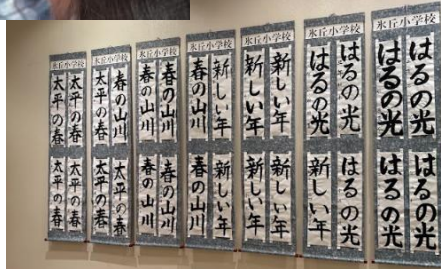 氷丘小学校
はるの光
はるの光
はるの光
はるの光
氷丘小学校
はるの光
はるの光
はるの光
新しい年
氷丘小学校
新しい年
新しい年
新しい年
新しい年
氷丘小学校
新しい年
春の山川
新しい年
春の山川
氷丘小学校
春の山川
春の山川
春の山川
春の山川
氷丘小学校
春の山川
太平の春
太平の春
太平の春
氷丘小学校
太平の春
太平の春
太平の春
太平の春